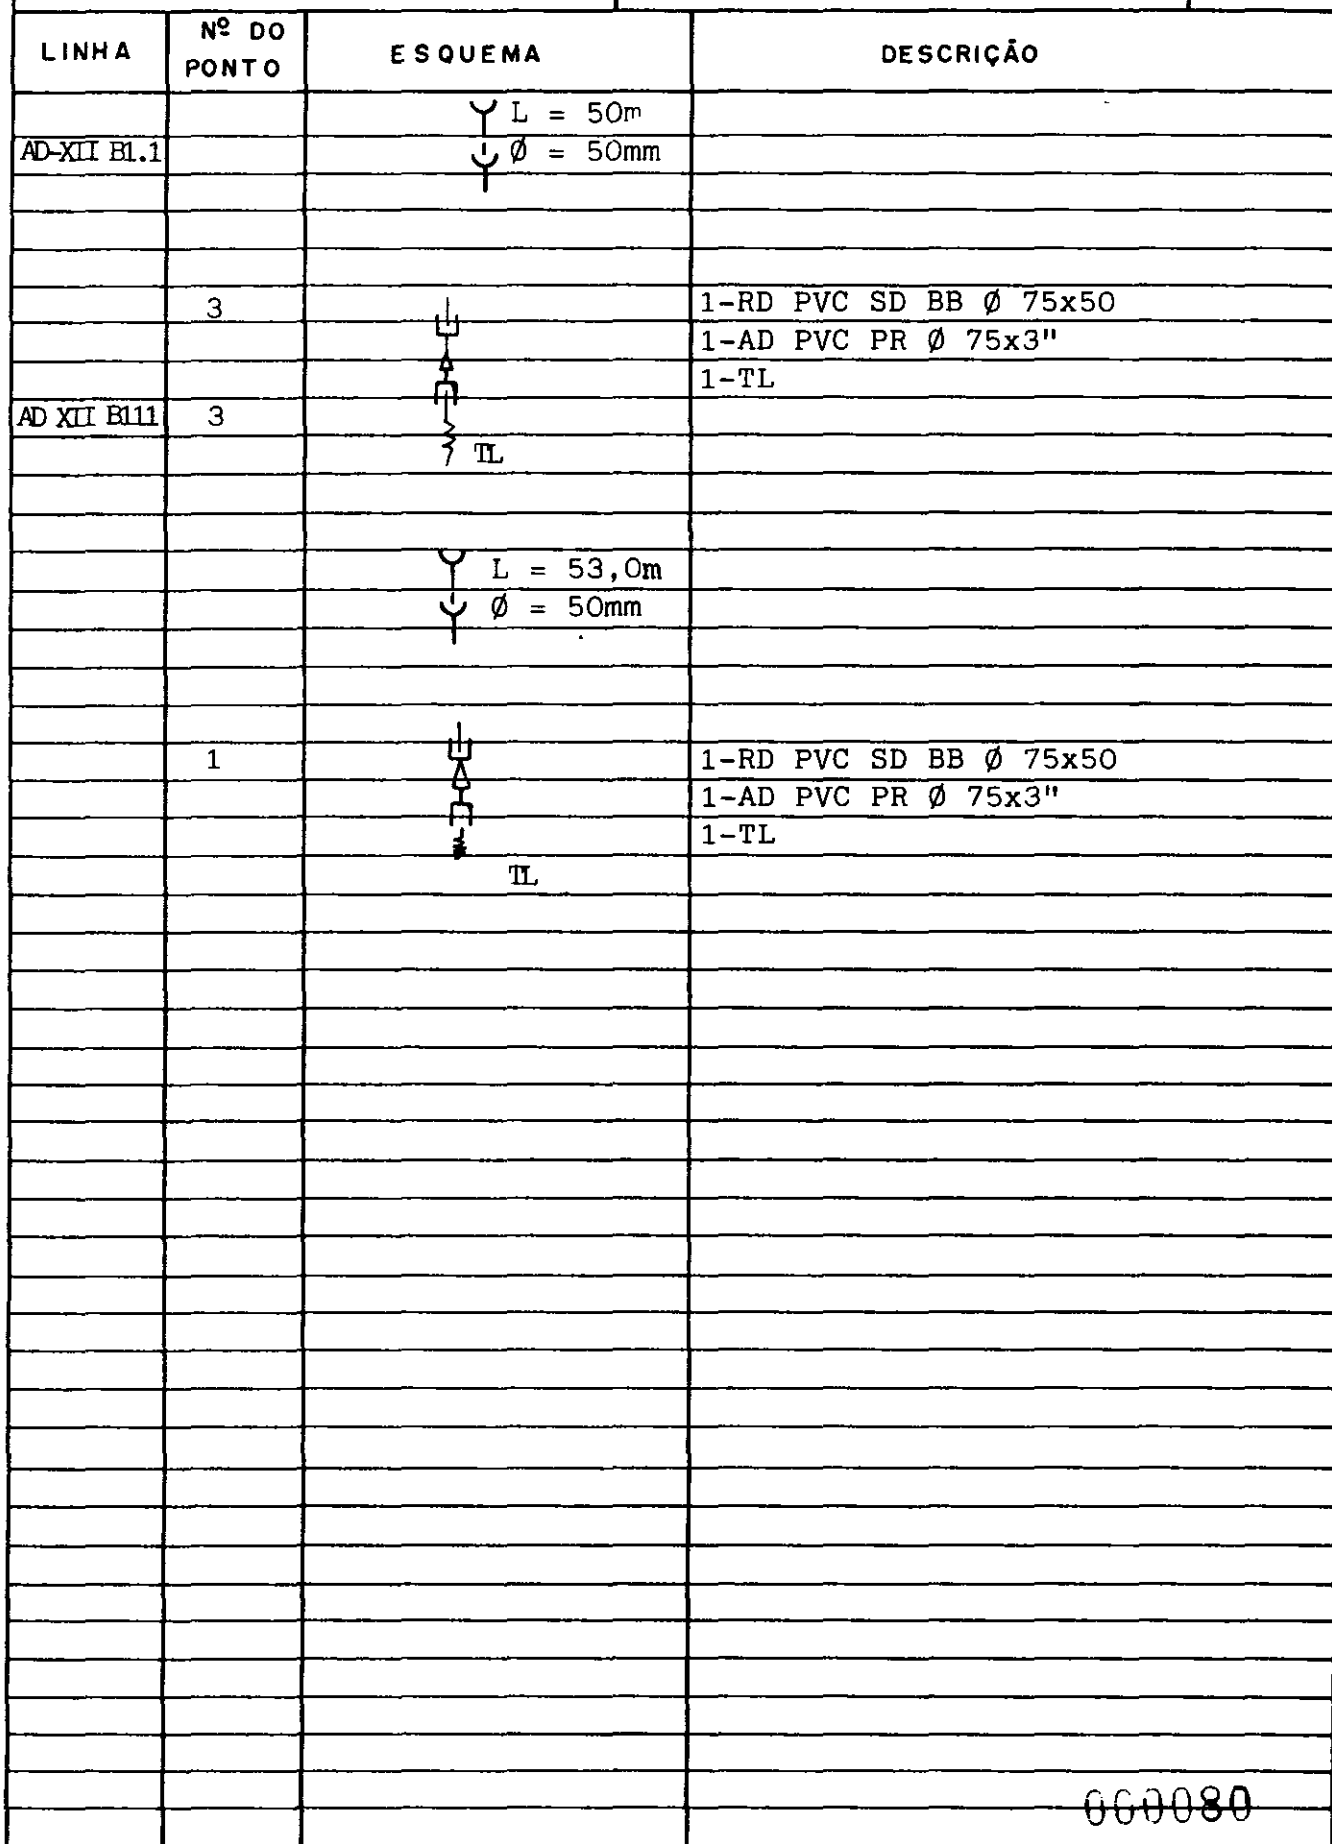 LINHA Nº DO PONTO ESQUEMA DESCRIÇÃO
L = 50m
AD-XII B1.1 Ø = 50mm
3 1-RD PVC SD BB Ø 75x50
1-AD PVC PR Ø 75x3"
1-TL
AD XII B111 3
TL
L = 53,0m
Ø = 50mm
1 1-RD PVC SD BB Ø 75x50
1-AD PVC PR Ø 75x3"
1-TL
TL
000080